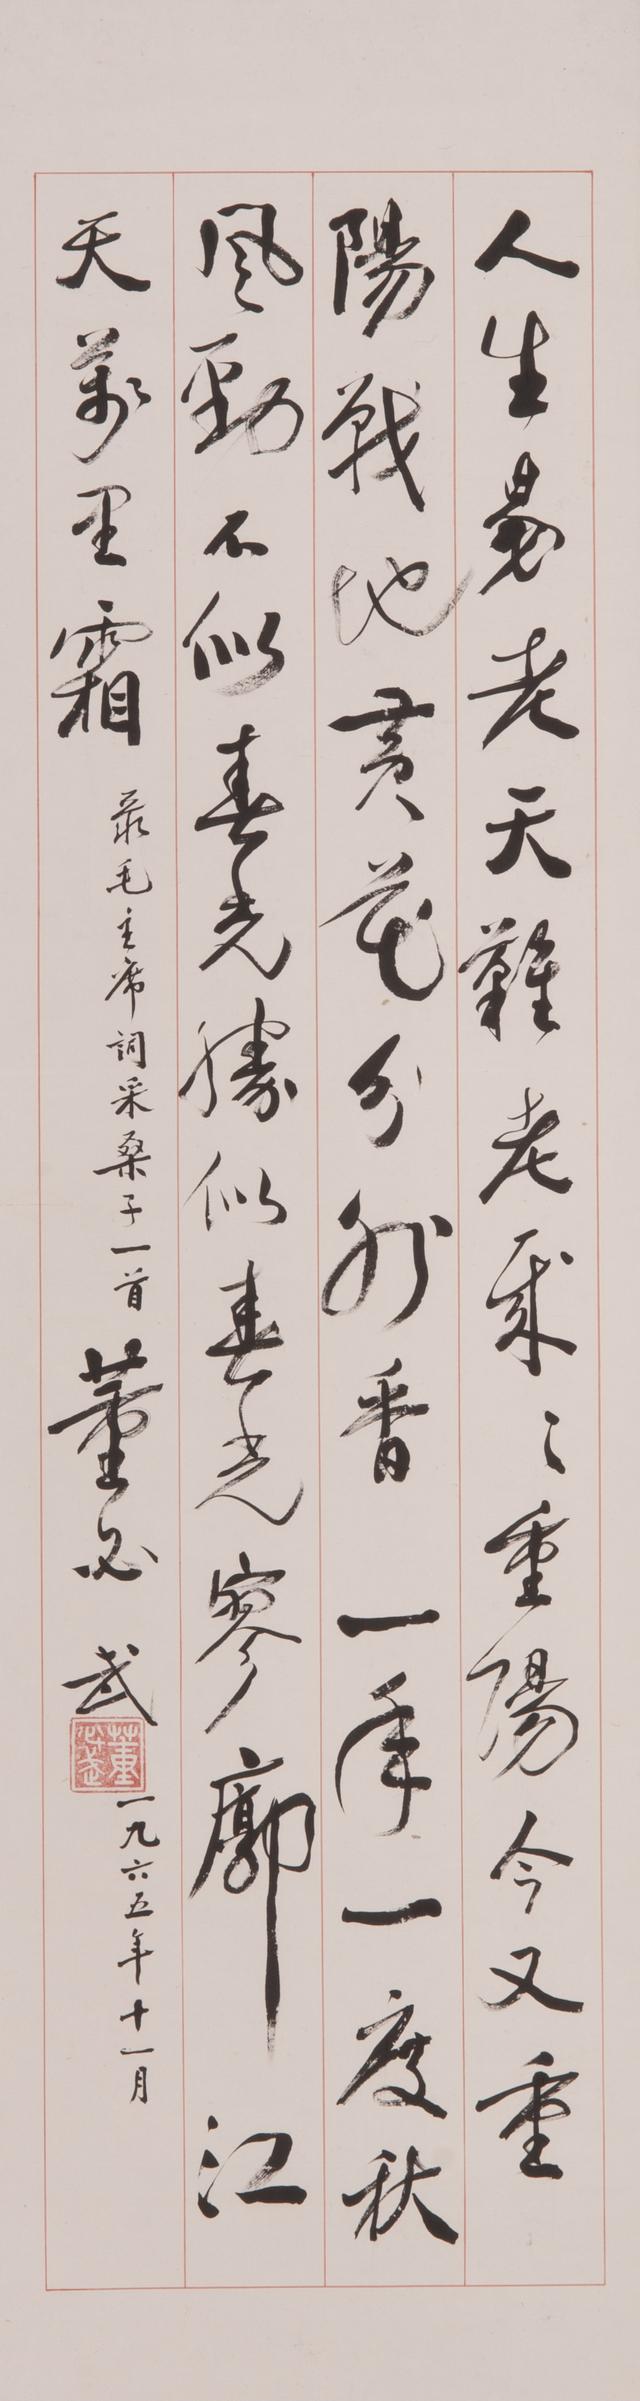 人生易老天難老歲〻重陽今又重
陽戰地黃花分外香一年一度秋
風勁不似春光勝似春光寥廓江
天萬里霜
录毛主席詞采桑子一首
董必武
董必武
一九六五年十一月